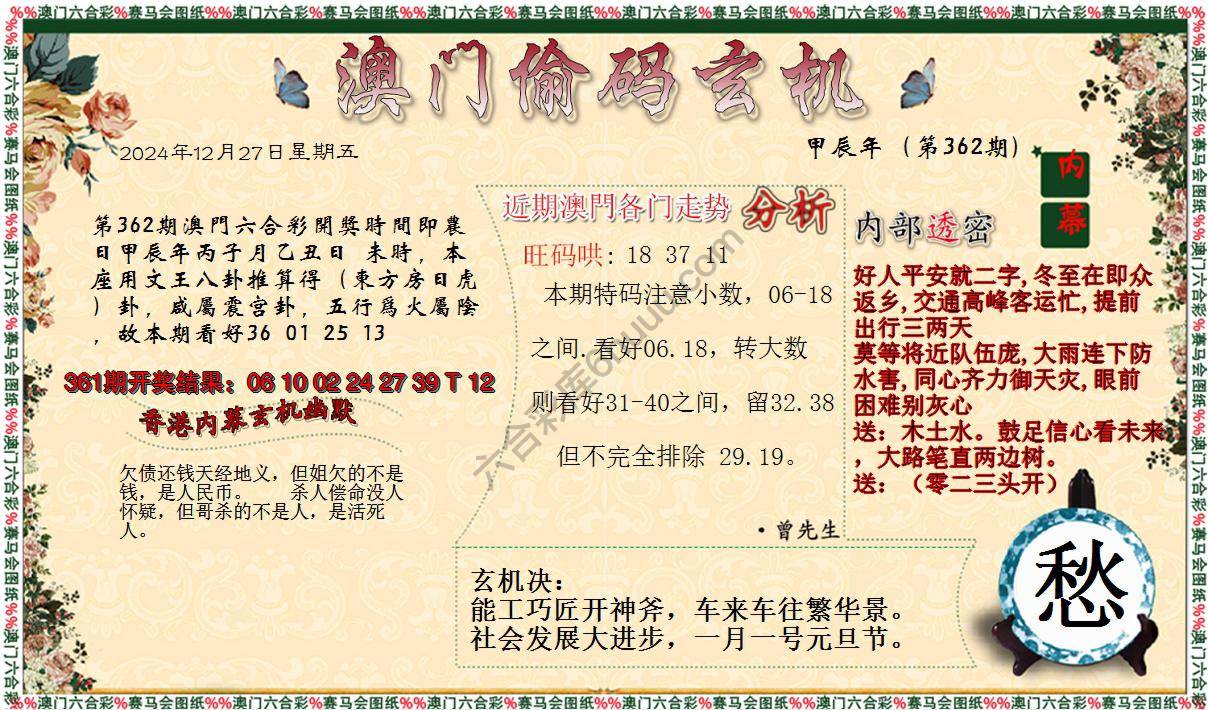 %%澳门六合彩%赛马会图纸%%澳门六合彩%赛马会图纸%%澳门六合彩%赛马会图纸%%澳门六合彩%赛马会图纸%%澳门六合彩%赛马会图纸%%澳门六合彩%赛马会图纸%%
澳门偷码玄机
2024年12月27日星期五
甲辰年（第362期）
内
幕
第362期澳門六合彩開獎時間即農
日甲辰年丙子月乙丑日 未時，本
座用文王八卦推算得（東方房日虎
）卦，咸屬震宫卦，五行爲火屬陰
，故本期看好36 01 25 13
361期开奖结果：06 10 02 24 27 39 T 12
香港内幕玄机幽默
欠债还钱天经地义，但姐欠的不是
钱，是人民币。 杀人偿命没人
怀疑，但哥杀的不是人，是活死
人。
近期澳門各门走势 分析
旺码哄: 18 37 11
本期特码注意小数，06-18
之间.看好06.18，转大数
则看好31-40之间，留32.38
但不完全排除 29.19。
·曾先生
内部透密
好人平安就二字,冬至在即众
返乡,交通高峰客运忙,提前
出行三两天
莫等将近队伍庞,大雨连下防
水害,同心齐力御天灾,眼前
困难别灰心
送：木土水。鼓足信心看未来
，大路笔直两边树。
送：（零二三头开）
玄机决：
能工巧匠开神斧，车来车往繁华景。
社会发展大进步，一月一号元旦节。
愁
%%澳门六合彩%赛马会图纸%%澳门六合彩%赛马会图纸%%澳门六合彩%赛马会图纸%%澳门六合彩%赛马会图纸%%澳门六合彩%赛马会图纸%%澳门六合彩%赛马会图纸%%